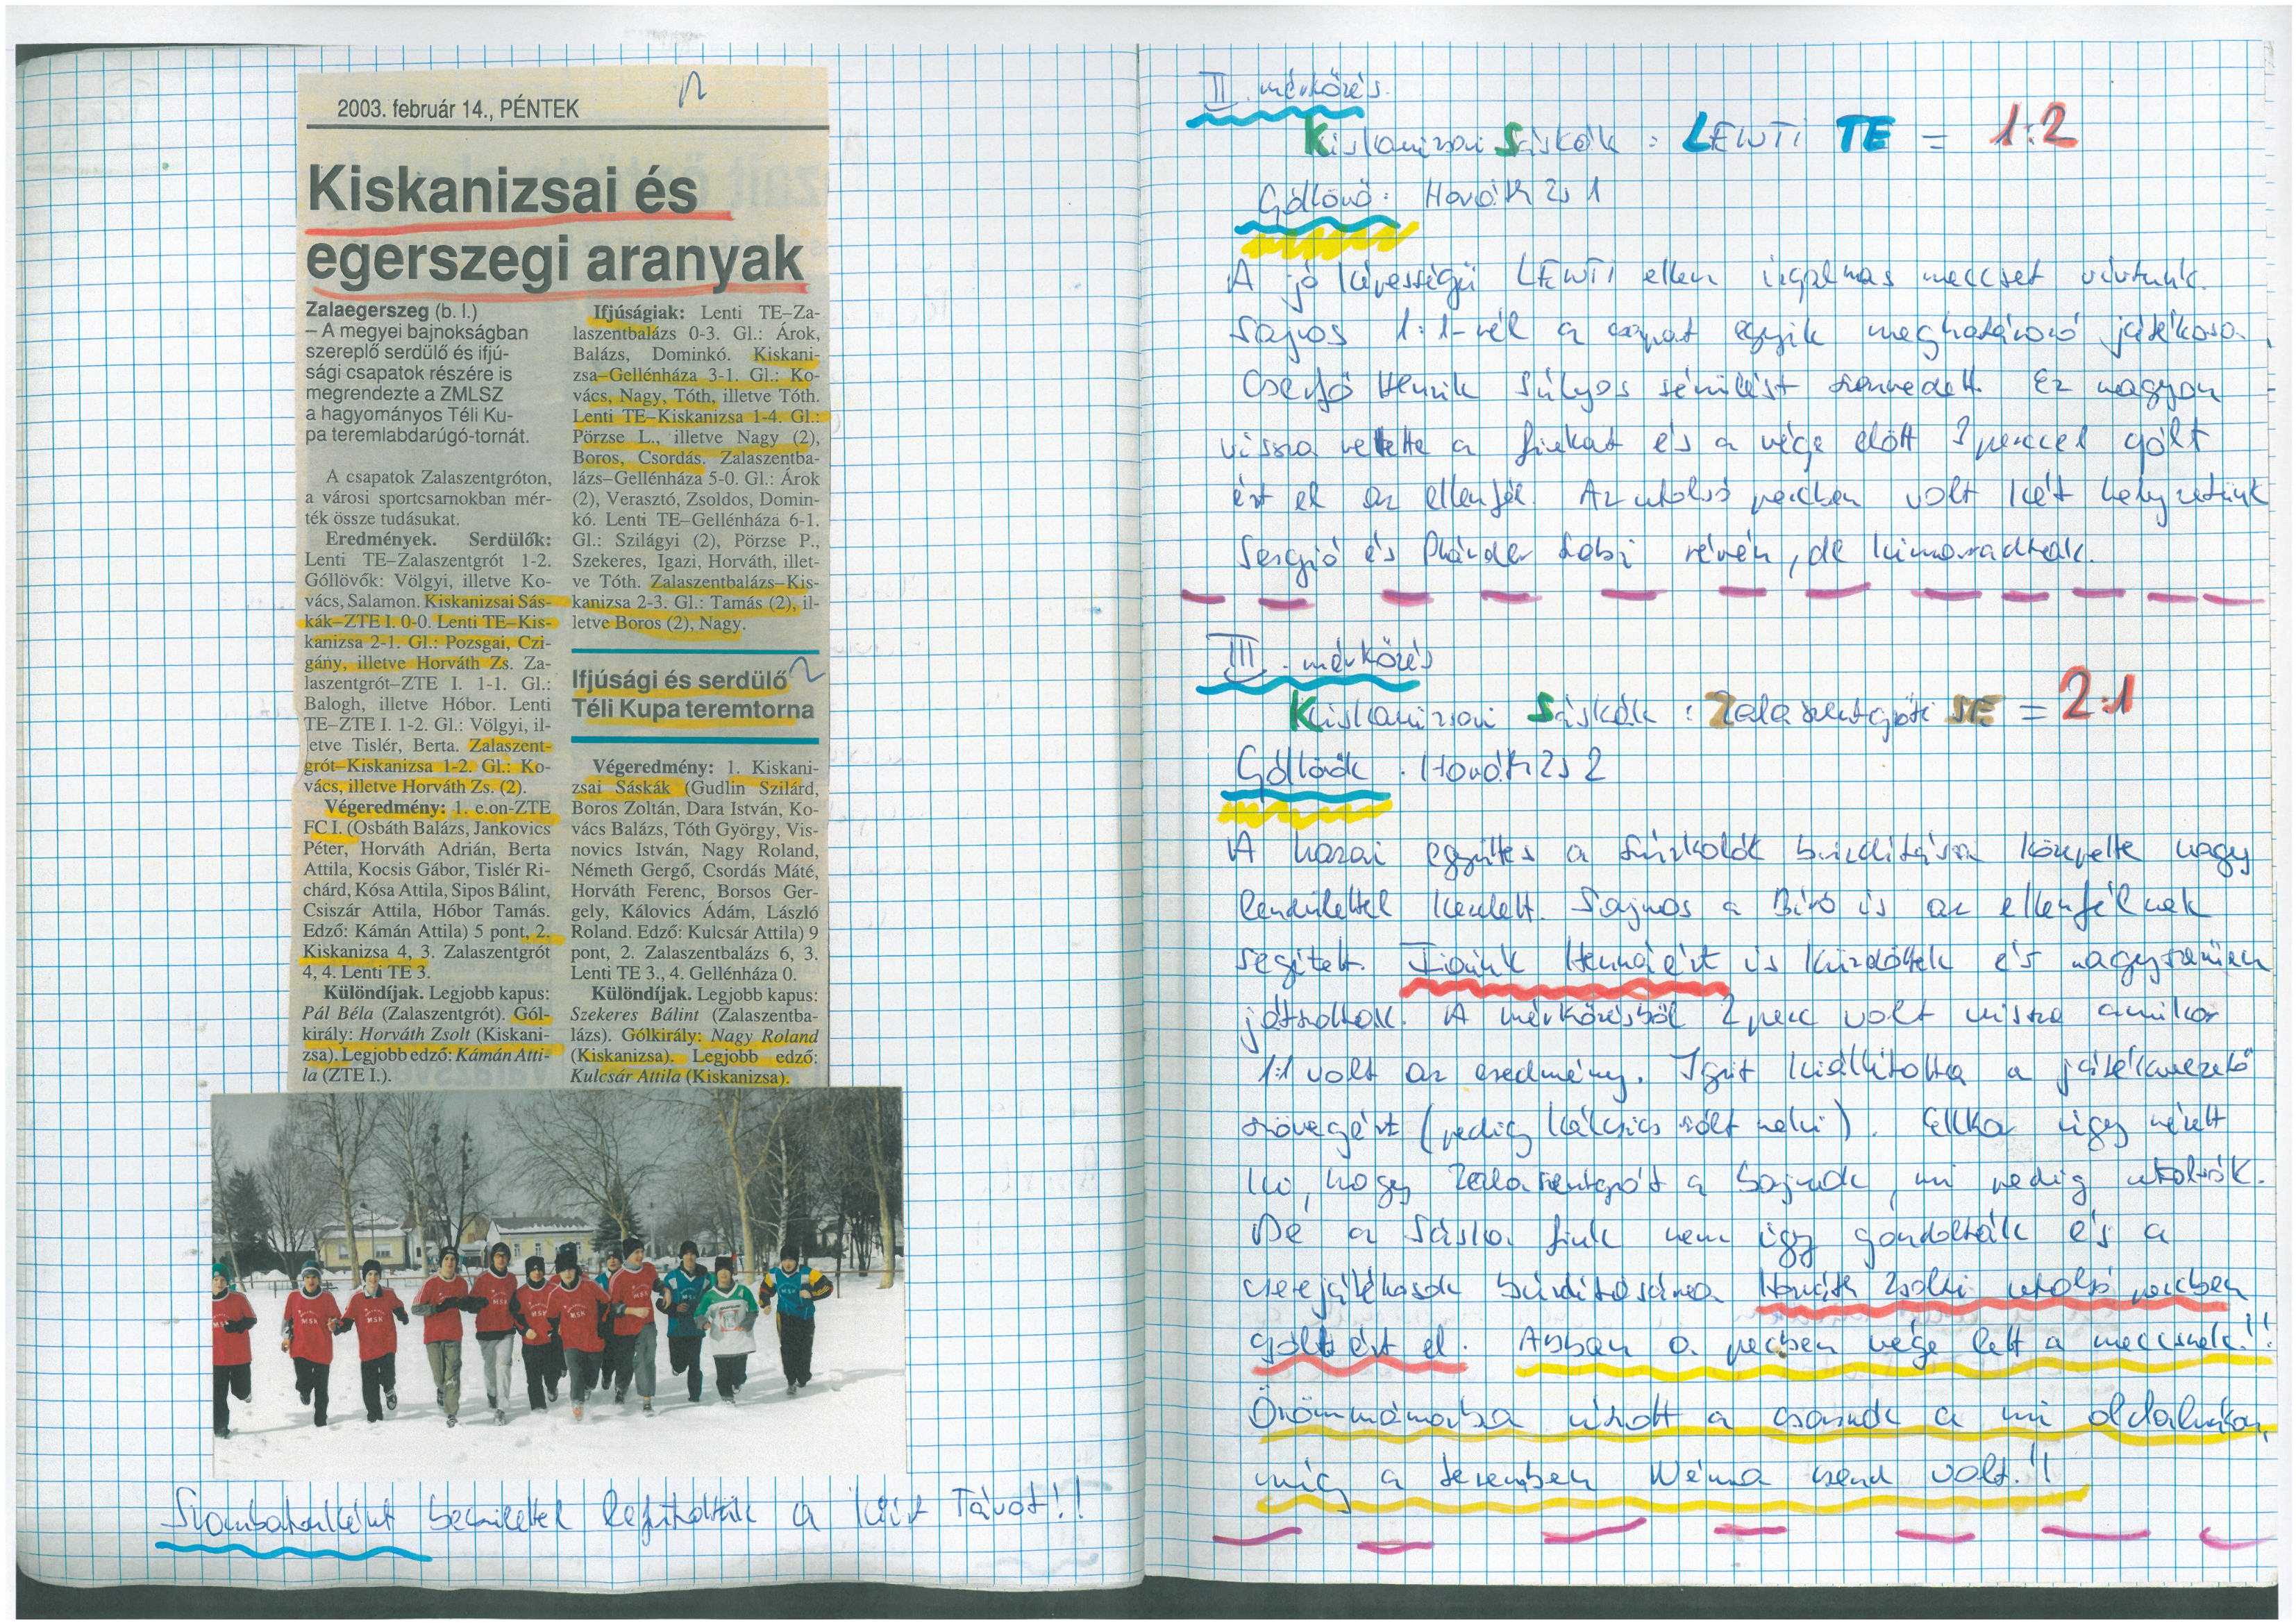 2003. február 14., PÉNTEK
Kiskanizsai és
egerszegi aranyak
Zalaegerszeg (b. l.)
– A megyei bajnokságban
szereplő serdülő és ifjú-
sági csapatok részére is
megrendezte a ZMLSZ
a hagyományos Téli Ku-
pa teremlabdarúgó-tornát.
A csapatok Zalaszentgróton,
a városi sportcsarnokban mér-
ték össze tudásukat.
Eredmények. Serdülők:
Lenti TE–Zalaszentgrót 1-2.
Góllövők: Völgyi, illetve Ko-
vács, Salamon. Kiskanizsai Sás-
kák–ZTE I. 0-0. Lenti TE–Kis-
kanizsa 2-1. Gl.: Pozsgai, Czi-
gány, illetve Horváth Zs. Za-
laszentgrót–ZTE I. 1-1. Gl.:
Balogh, illetve Hóbor. Lenti
TE–ZTE I. 1-2. Gl.: Völgyi, il-
letve Tislér, Berta. Zalaszent-
grót–Kiskanizsa 1-2. Gl.: Ko-
vács, illetve Horváth Zs. (2).
Végeredmény: 1. e.on-ZTE
FC I. (Osbáth Balázs, Jankovics
Péter, Horváth Adrián, Berta
Attila, Kocsis Gábor, Tislér Ri-
chárd, Kósa Attila, Sipos Bálint,
Csiszár Attila, Hóbor Tamás.
Edző: Kámán Attila) 5 pont, 2.
Kiskanizsa 4, 3. Zalaszentgrót
4, 4. Lenti TE 3.
Különdíjak. Legjobb kapus:
Pál Béla (Zalaszentgrót). Gól-
király: Horváth Zsolt (Kiskani-
zsa). Legjobb edző: Kámán Atti-
la (ZTE I.).
Ifjúságiak: Lenti TE–Za-
laszentbalázs 0-3. Gl.: Árok,
Balázs, Dominkó. Kiskani-
zsa–Gellénháza 3-1. Gl.: Ko-
vács, Nagy, Tóth, illetve Tóth.
Lenti TE–Kiskanizsa 1-4. Gl.:
Pörzse L., illetve Nagy (2),
Boros, Csordás. Zalaszentba-
lázs–Gellénháza 5-0. Gl.: Árok
(2), Verasztó, Zsoldos, Domin-
kó. Lenti TE–Gellénháza 6-1.
Gl.: Szilágyi (2), Pörzse P.,
Szekeres, Igazi, Horváth, illet-
ve Tóth. Zalaszentbalázs–Kis-
kanizsa 2-3. Gl.: Tamás (2), il-
letve Boros (2), Nagy.
Ifjúsági és serdülő
Téli Kupa teremtorna
Végeredmény: 1. Kiskani-
zsai Sáskák (Gudlin Szilárd,
Boros Zoltán, Dara István, Ko-
vács Balázs, Tóth György, Vis-
novics István, Nagy Roland,
Németh Gergő, Csordás Máté,
Horváth Ferenc, Borsos Ger-
gely, Kálovics Ádám, László
Roland. Edző: Kulcsár Attila) 9
pont, 2. Zalaszentbalázs 6, 3.
Lenti TE 3., 4. Gellénháza 0.
Különdíjak. Legjobb kapus:
Szekeres Bálint (Zalaszentba-
lázs). Gólkirály: Nagy Roland
(Kiskanizsa). Legjobb edző:
Kulcsár Attila (Kiskanizsa).
Szombatonként becsülettel lefutottuk a kiírt távot!!
II. mérkőzés.
Kiskanizsai Sáskák : LENTI TE = 1:2
Góllövő: Horváth Zs 1
A jó képességű LENTI ellen izgalmas meccset vívtunk.
Sajnos 1:1-nél a csapat egyik meghatározó játékosa
Cserfő Henrik súlyos sérülést szenvedett. Ez nagyon
vissza vetette a fiukat és a vége előtt perccel gólt
ért el az ellenfél. Az utolsó percben volt két helyzetünk
Sergió és Szabi révén, de kimaradtak.
III. mérkőzés
Kiskanizsai Sáskák : Zalaszentgróti SE = 2:1
Góllövők: Horváth Zs 2
A hazai együttes a szurkolók bíztatása közepette nagy
lendülettel kezdett. Sajnos a Biró is az ellenfélnek
segített. Fiúink Hennáért is küzdöttek és nagyszerűen
játszottak. A mérkőzésből 2 perc volt vissza amikor
1:1 volt az eredmény. Igrit kiállította a játékvezető
szövegért (pedig szólt neki). Ekkor úgy nézett
ki, hogy Zalaszentgrót a bajnok, mi pedig utolsók.
De a Sáska fiuk nem úgy gondolták és a
cserejátékosok bíztatására Horváth Zsolti utolsó percben
gólt ért el. Abban a percben vége lett a meccsnek!!
Örömmámorba úszott a csarnok a mi oldalunkon,
míg a teremben Néma csend volt!!